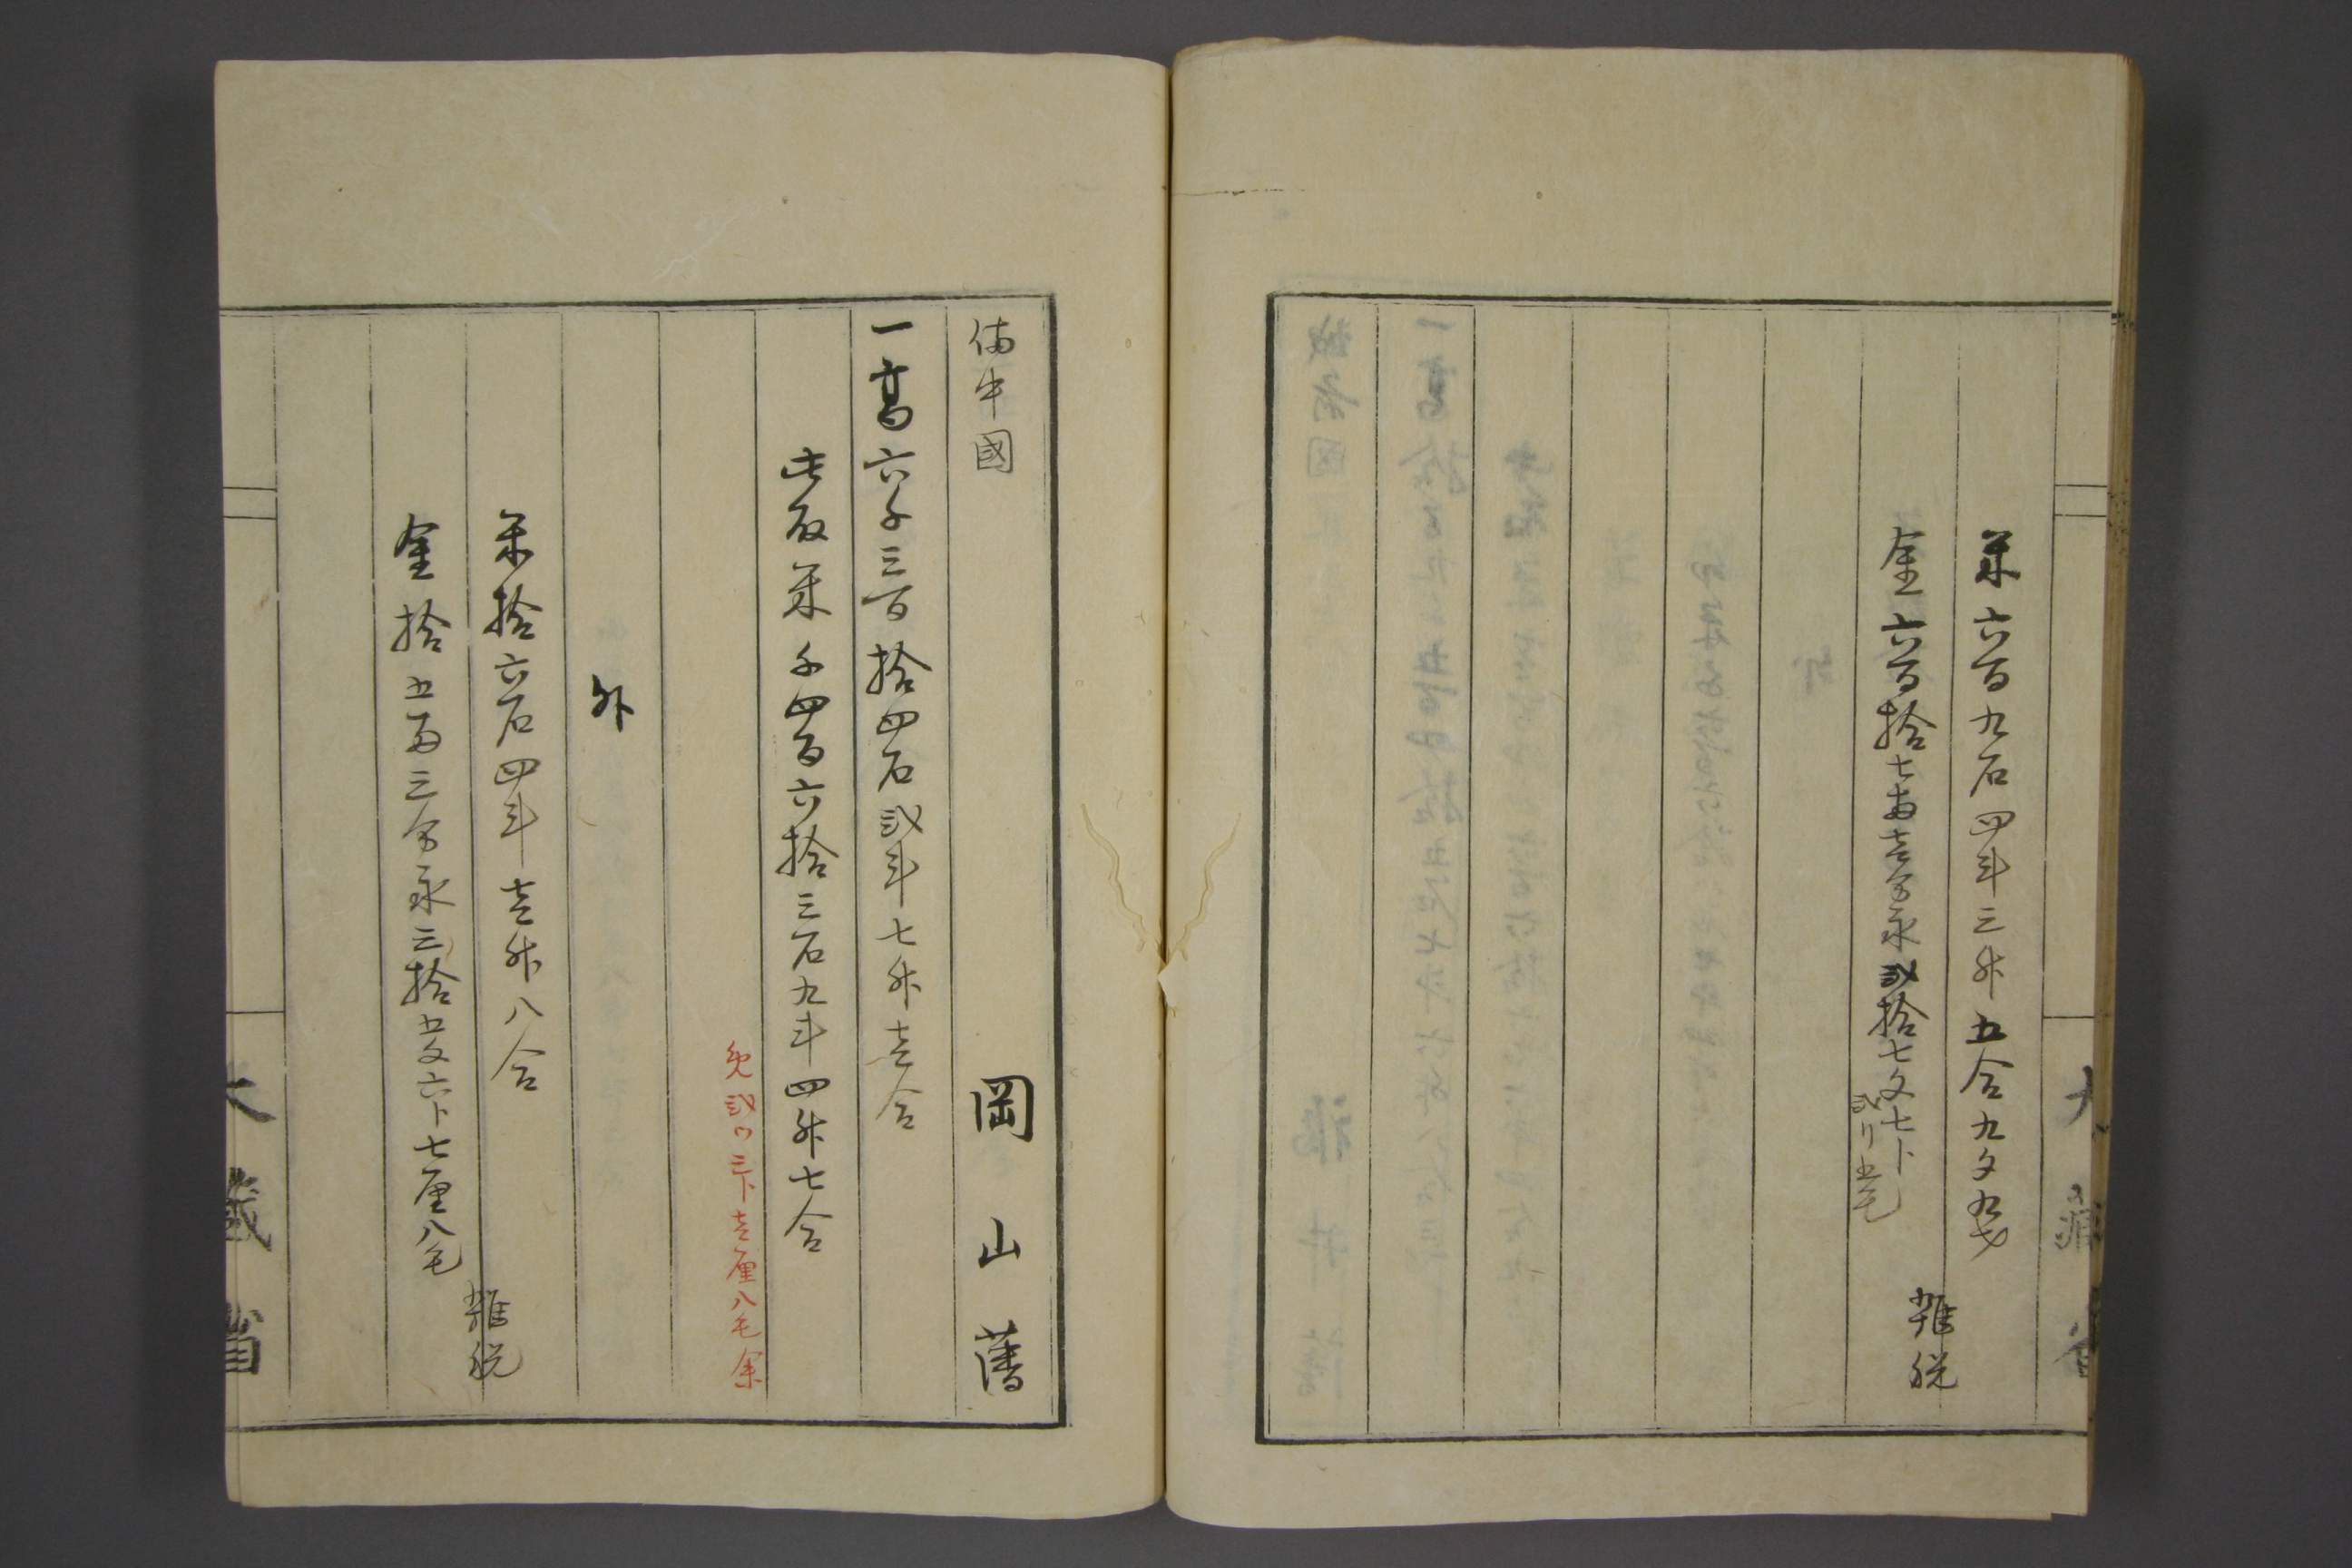 米六百九石四斗三升五合九夕九才
金六百拾七両壱分永弐拾七文七卜
弐リ五毛
雑税
備中國
岡山藩
一高六千三百拾四石弐斗七升壱合
此取米千四百六拾三石九斗四升七合
免弐ツ三卜壱厘八毛余
外
米拾六石四斗壱升八合
金拾五両三分永三拾五文六卜七厘八毛
雑税
大蔵省